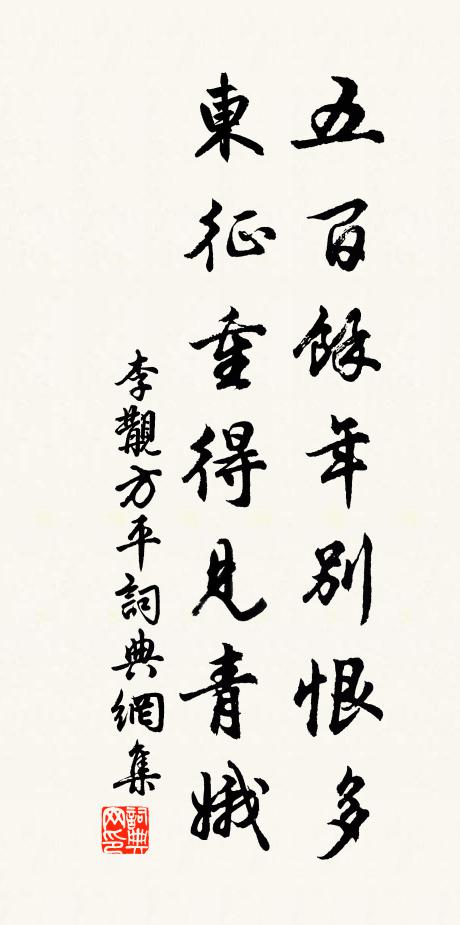 五百餘年別恨多
東征重得見青娥
李觀方平詞典網集
詞典
网印